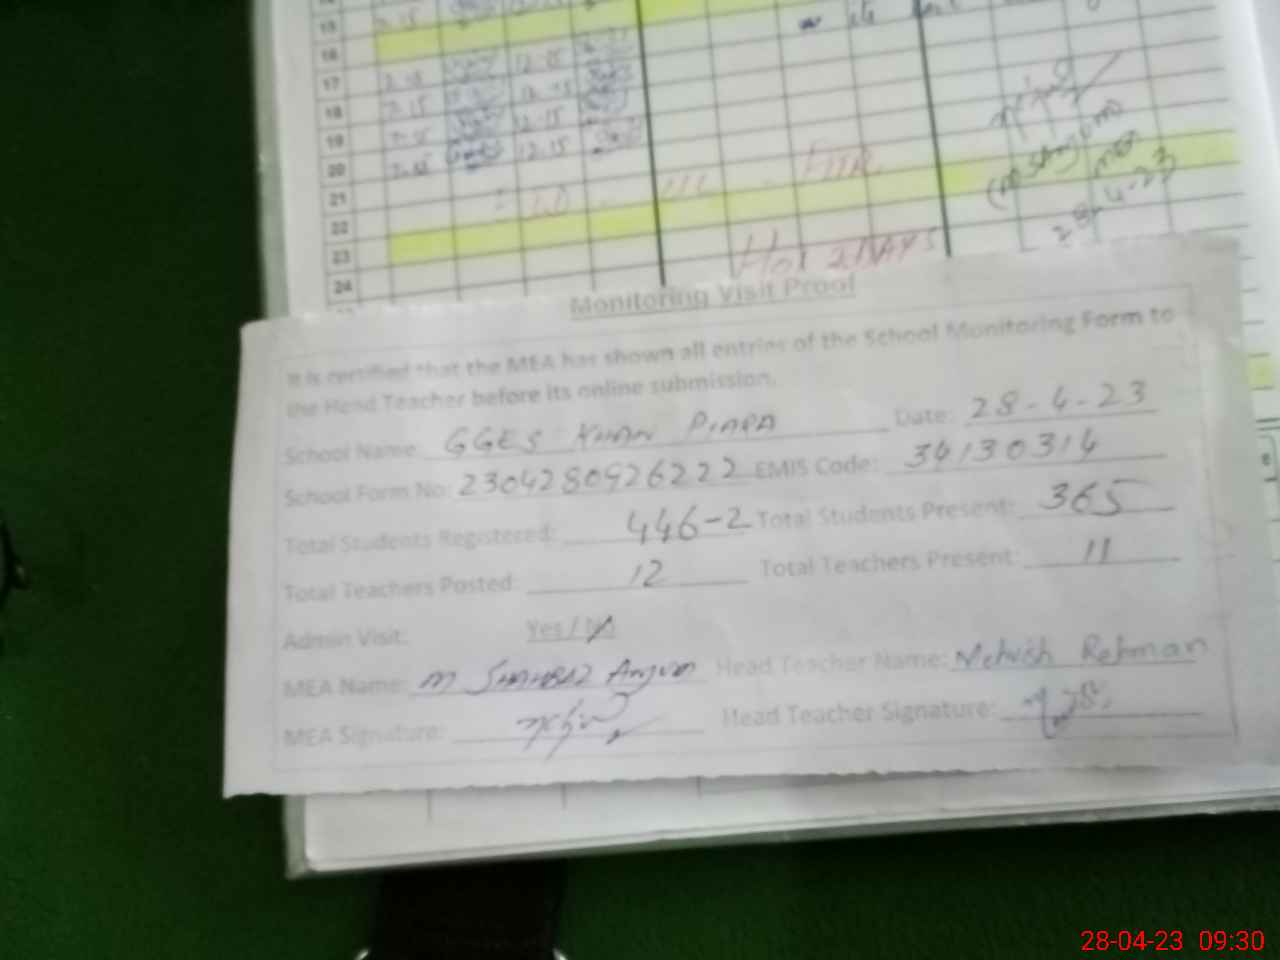 15 7.15
16
17 7.15 12.15
18 7.15 12.15
19 7.15 12.15
20 7.15 12.15
21 FITR
22
23 HOLIDAYS
24
28-4-23
Monitoring Visit Proof
It is certified that the MEA has shown all entries of the School Monitoring Form to
the Head Teacher before its online submission.
School Name: GGES KHAN PIARA Date: 28-4-23
School Form No: 2304280926222 EMIS Code: 34130314
Total Students Registered: 446-2 Total Students Present: 365
Total Teachers Posted: 12 Total Teachers Present: 11
Admin Visit: Yes / No
MEA Name: M SHAHBAZ Anjum Head Teacher Name: Mehvish Rehman
MEA Signature: Head Teacher Signature:
28-04-23 09:30